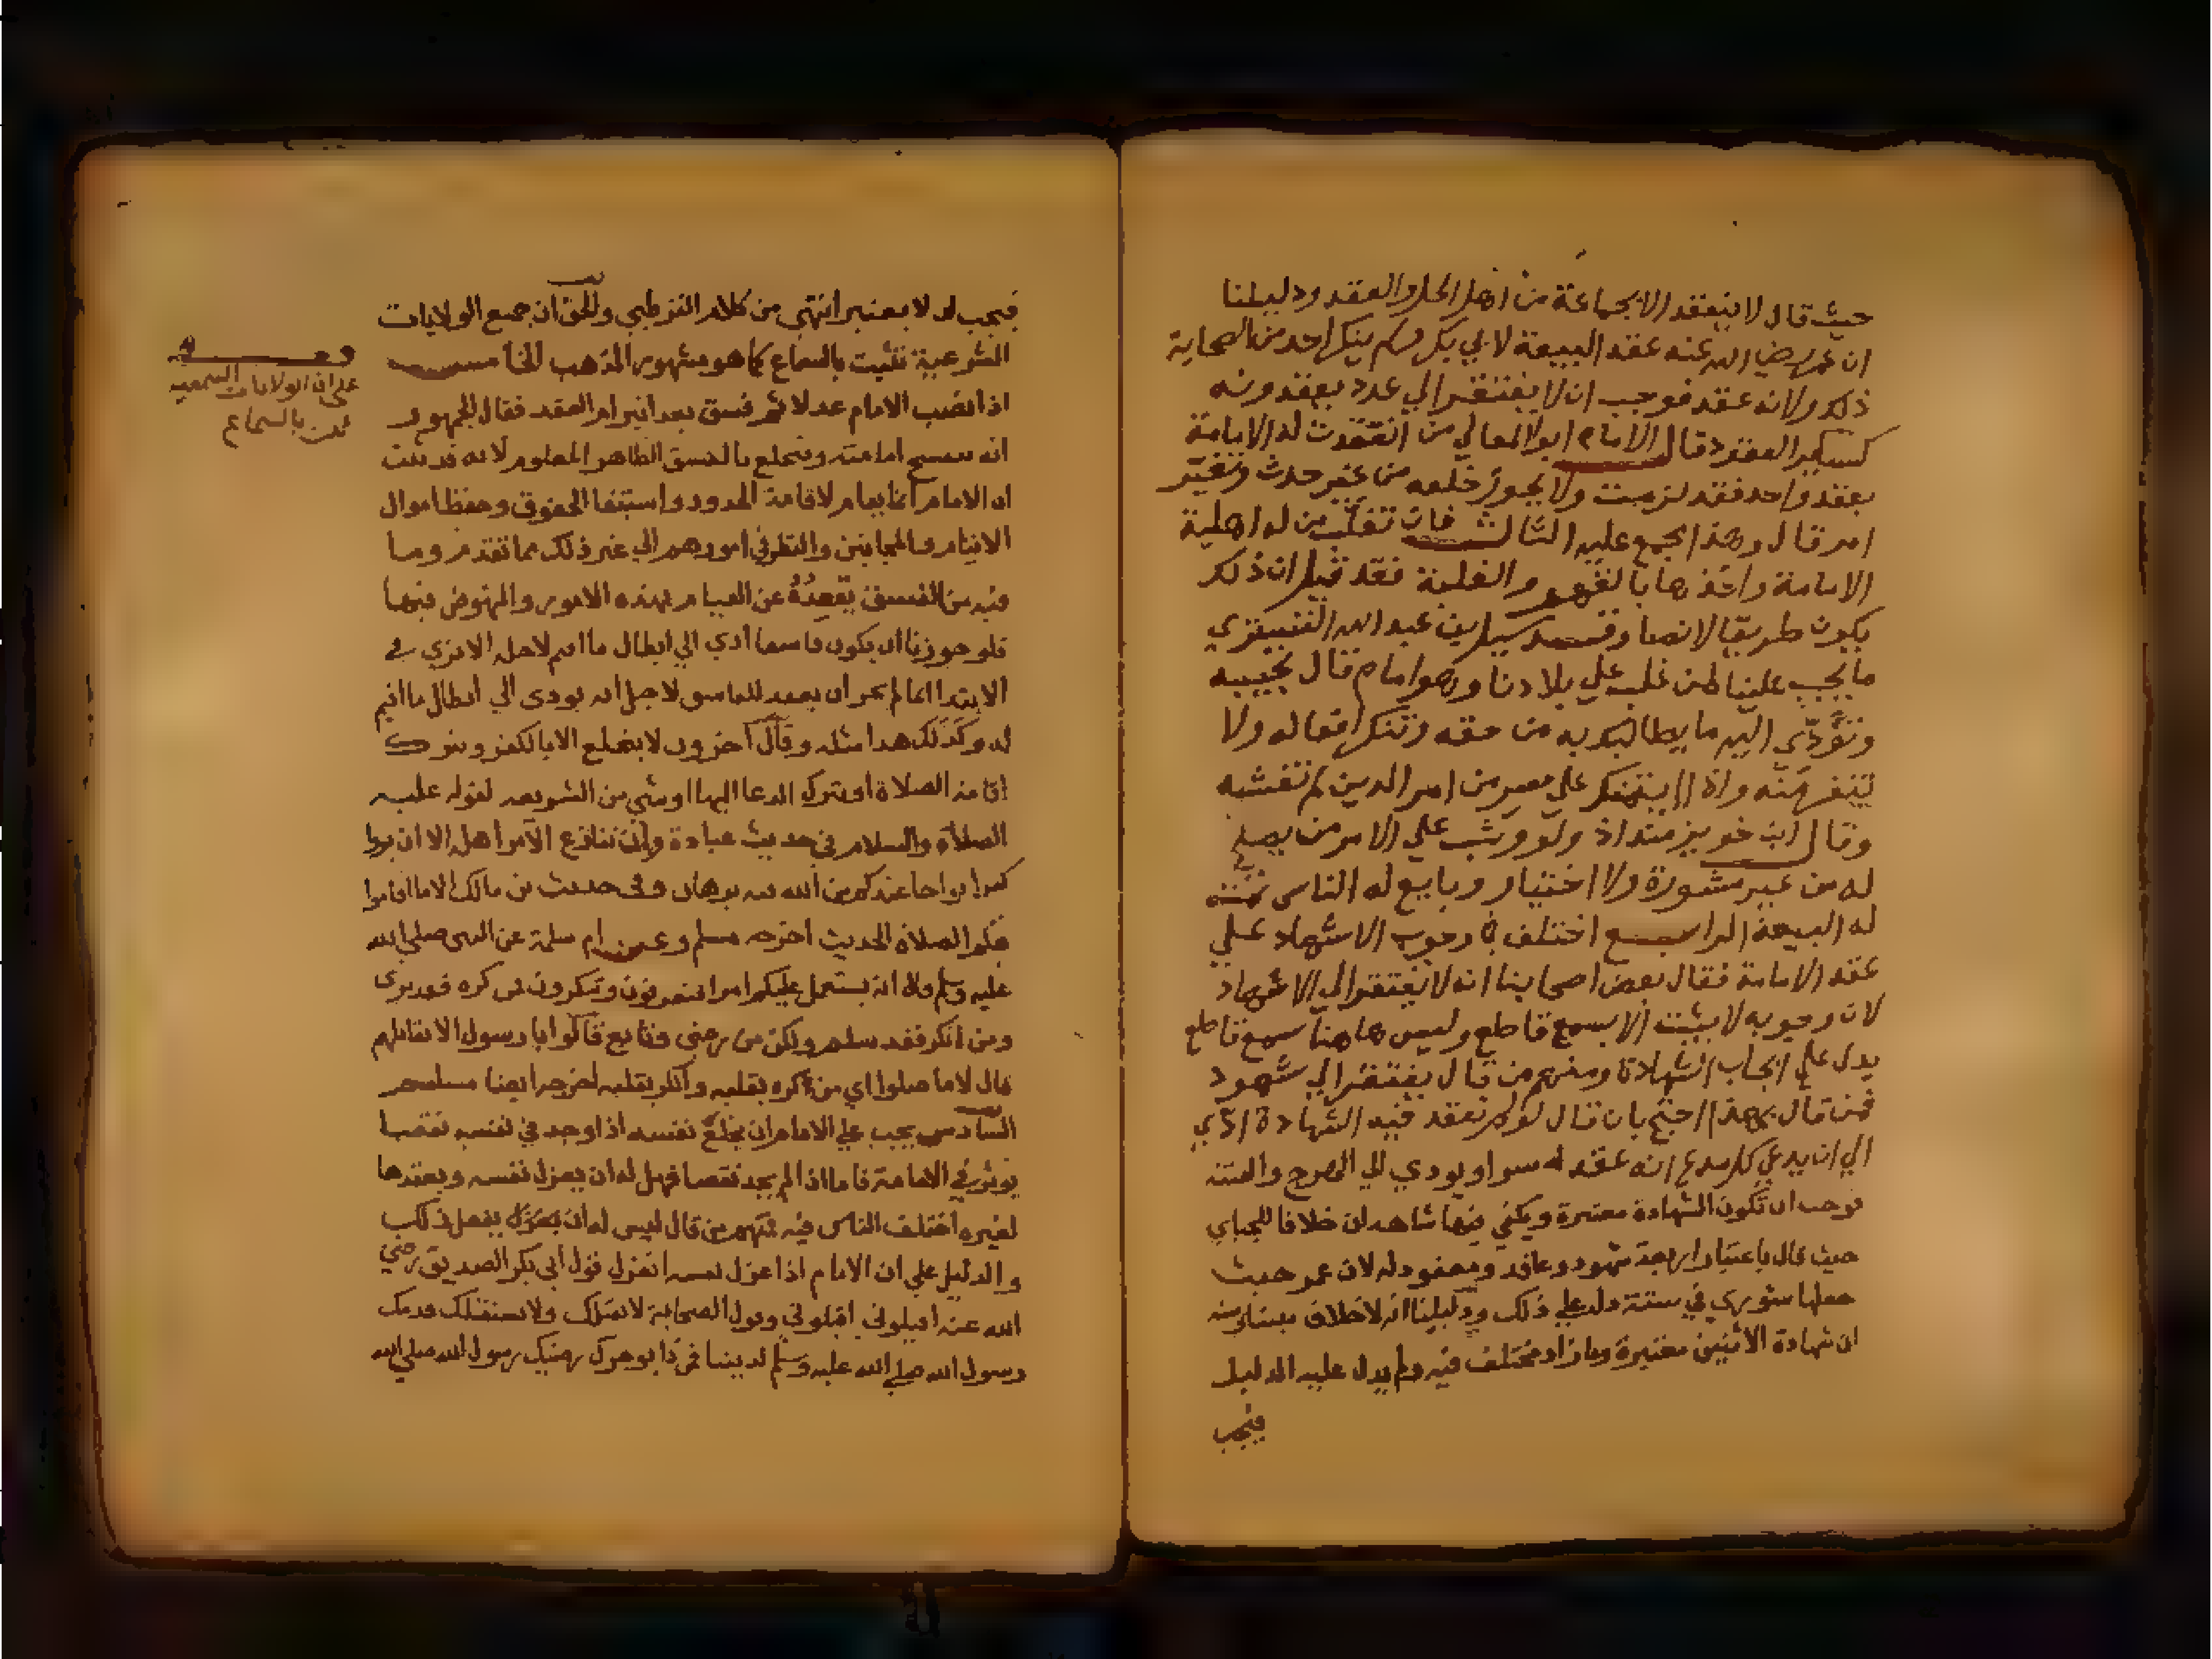 حيث قال لا ينعقد الا بجماعة من اهل الحل والعقد ودليلنا
ان عمر رضي الله عنه عقد البيعة لابي بكر ولم ينكر احد من الصحابة
ذلك ولانه عقد فوجب ان لا يفتقر الي عدد يعقدونه
كساير العقود قال الامام ابو المعالي من انعقدت له الامامة
بعقد واحد فقد لزمت ولا يجوز خلعه من غير حدث وتغير
امر قال وهذا مجمع عليه الثالث فان تغلب من له اهلية
الامامة واخذها بالقهر والغلبة فقد قيل ان ذلك
يكون طريقا لانصا وقد سيل سهل بن عبد الله التستري
ما يجب علينا لمن غلب علي بلادنا وهو امام قال تجيبه
وتؤدي اليه ما يطالبك به من حقه ولا تنكر افعاله ولا
تنفر منه واذا ايتمنك علي سر من امر الدين لم تفشه
وقال ابن خويز منداذ ولو وثب علي الامر من يصلح
له من غير مشورة ولا اختيار وبايع له الناس تمت
له البيعة الرابع اختلف في وجوب الاشهاد علي
عقد الامامة فقال بعض اصحابنا انه لا يفتقر الي الاشهاد
لان وجوبه لا يثبت الا بسمع قاطع وليس هاهنا سمع قاطع
يدل علي ايجاب الشهادة ومنهم من قال يفتقر الي شهود
فمن قال بهذا احتج بان قال لو لم تعقد فيه الشهادة ادي
الي ان يدعي كل مدع انه عقد له سرا ويودي الي الهرج والفتنه
فوجب ان تكون الشهادة معتبرة ويكفي فيها شاهدان خلافا للجباي
حيث قال باعتبار اربعة شهود وعاقد ومعقود له لان عمر حيث
جعلها شوري في ستة دل علي ذلك ودليلنا انه لا خلاف بيننا وبينه
ان شهادة الاثنين معتبرة وما زاد مختلف فيه ولم يدل عليه الدليل
فيجب
فيجب ان لا يعتبر انتهي من كلام القرطبي والحق ان جميع الولايات
الشرعية تثبت بالسماع كما هو مشهور المذهب الخامس
اذا نصب الامام عدلا ثم فسق بعد انبرام العقد فقال الجمهور
انه تنفسخ امامته وينخلع بالفسق الظاهر المعلوم لانه قد ثبت
ان الامام انما يقام لاقامة الحدود واستيفا الحقوق وحفظ اموال
الايتام والمجانين والنظر في امورهم الي غير ذلك مما تقدم وما
فيه من الفسق يقعده عن القيام بهذه الامور والنهوض فيها
فلو جوزنا ان يكون فاسقا ادي الي ابطال ما اقيم لاجله الا تري في
الابتدا انما لم يجز ان يعقد للفاسق لاجل انه يودي الي ابطال ما اقيم
له وكذلك هذا مثله وقال اخرون لا ينخلع الا بالكفر وبترك
اقامة الصلاة او بترك الدعا اليها او شي من الشريعة لقوله عليه
الصلاة والسلام في حديث عبادة وان لا ننازع الامر اهله الا ان تروا
كفرا بواحا عندكم من الله فيه برهان وفي حديث بن مالك لا ما اقاموا
فيكم الصلاة الحديث اخرجه مسلم وعن ام سلمة عن النبي صلي الله
عليه وسلم قال انه يستعمل عليكم امرا فتعرفون وتنكرون فمن كره فقد بري
ومن انكر فقد سلم ولكن من رضي وتابع قالوا يا رسول الا نقاتلهم
قال لا ما صلوا اي من كره بقلبه وانكر بقلبه اخرجه ايضا مسلم
السادس يجب علي الامام ان يخلع نفسه اذا وجد في نفسه نقصا
يوثر في الامامة فاما اذا لم يجد نقصا فهل له ان يعزل نفسه ويعقدها
لغيره اختلف الناس فيه فمنهم من قال ليس له ان يفعل ذلك
والدليل علي ان الامام اذا عزل نفسه انعزل قول ابي بكر الصديق رضي
الله عنه اقيلوني اقيلوني وقول الصحابة لا نقيلك ولا نستقيلك قدمك
رسول الله صلي الله عليه وسلم لديننا فمن ذا يوخرك رضيك رسول الله صلي الله
قف
علي ان الولايات الشرعيه
تثبت بالسماع